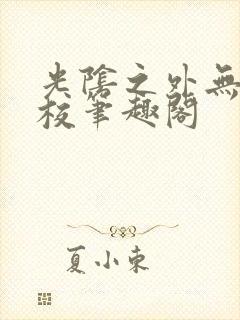 光陰之外無
校筆趣閣
夏小東